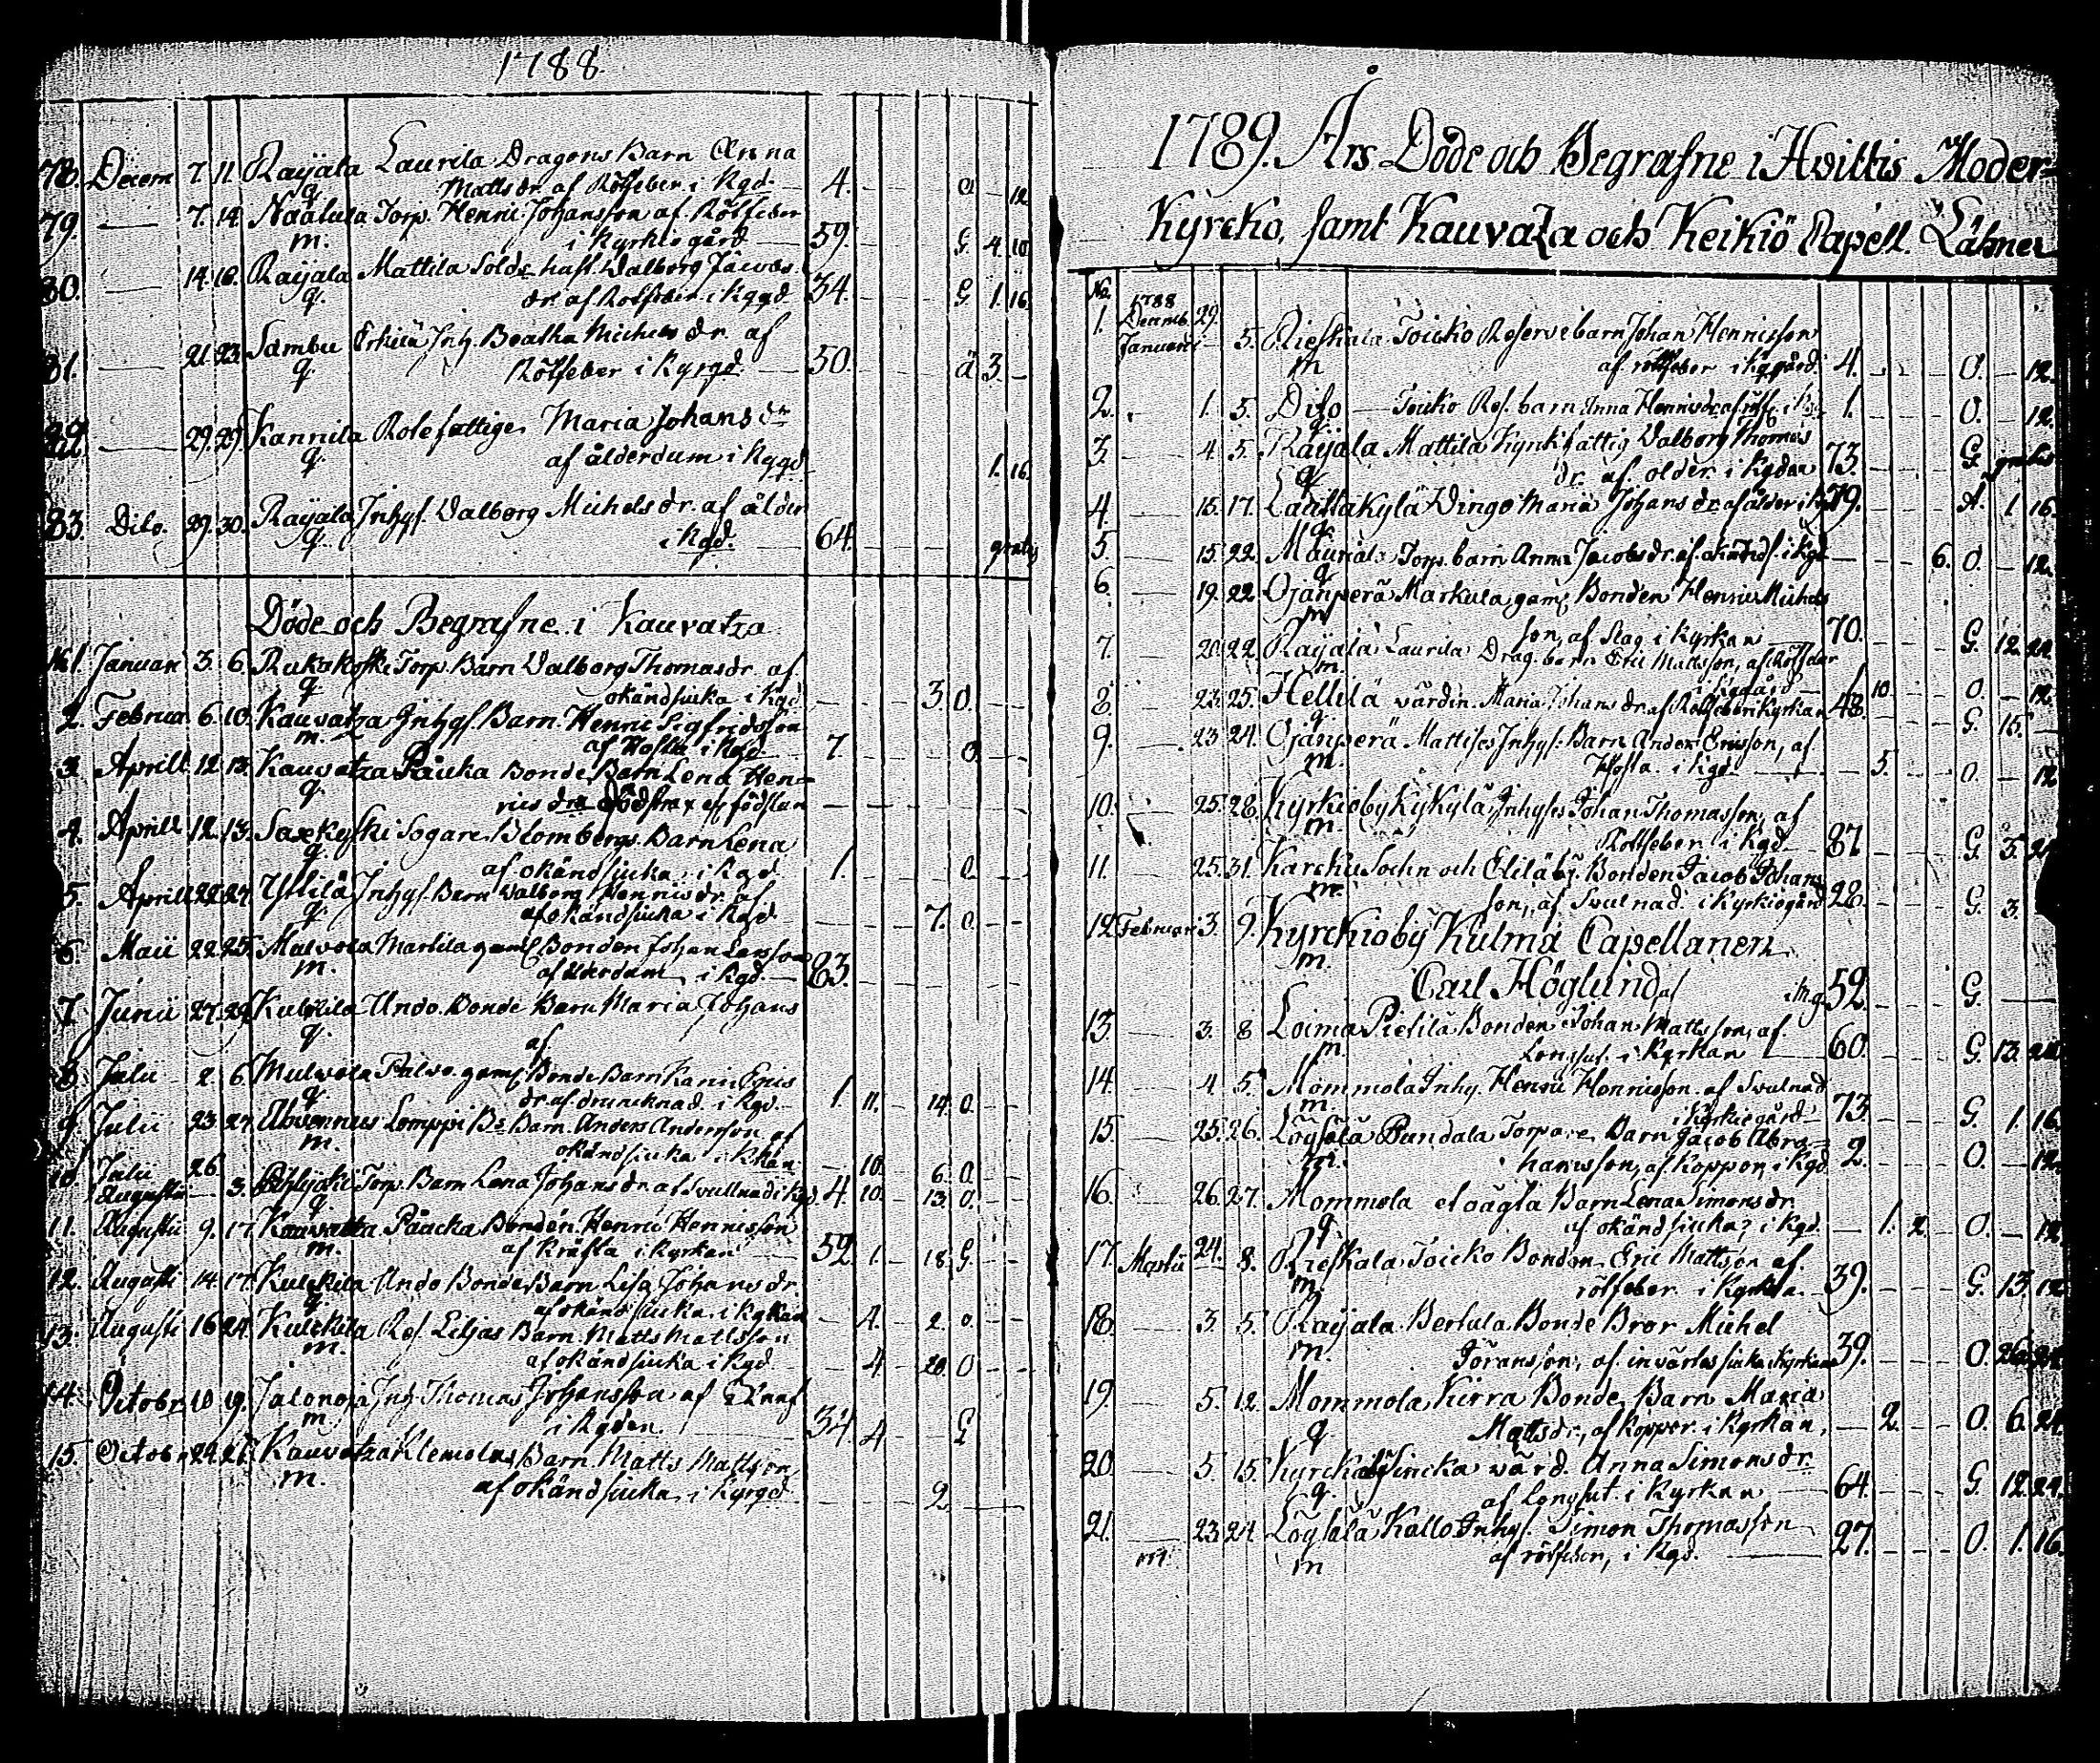 1788
78. Decem 7. 11. Raijala Laurila Dragons Barn Anna
q. Matts dr. af Rötfeber i Kgd. 4. O 12
79. — 7. 14. Naalula Torp. Henric Johansson af Rötfeber
m. i Kyrkio gård 59. G 4. 10
80. — 14. 18. Raijala Mattila Solds hust. Walborg Jacobs
q. dr. af Rötfeber i Kggd 34. G 1. 16
81. — 21. 23. Sambu Erkilä Inh. Beatha Michels dr. af
q. Rötfeber i Kyrgd. 50. ä 3. —
82. — 29. 29. Kannila Rotefattige Maria Johans dr
q. af ålderdum i Kggd 1. 16
83. Dito. 29. 30. Raijala Inhys. Valborg Michels dr. af ålder
q. i Kgd. 64. gratis
Döde och Begrafne i Kauvatza
No 1. Januari 3. 6. Rukakoski Torp. Barn Valborg Thomas dr. af
q. okänd siuka i Kgd. 3. O.
2. Februar 6. 10. Kauvatza Inhys. Barn. Henric Sigfredsson
m. af Hosta i Kgd 7 O.
3. Aprill 12. 13. Kauvatza Paucka Bonde Barn Lena Hen=
q. rics dra död strax ef födslan
4. Aprill 12. 13. Saxekyski Sogare Blombergs Barn Lena
q. af okänd siuka i Kgd. 1. O
5. Aprill 22. 27. Yttilä Inhys. Barn Walborg Henrics dr. af
q. af okänd siuka i Kgd. 7. O.
6. Maii 22. 25. Malvola Markila gaml Bonden Johan Larsson
m. af ålderdum i Kgd. 83.
7. Junii 27. 29. Kulckila Undo Bonde Barn Maria Johans
q. af
8. Julii 2. 6. Mulvola Palvo gaml Bonde Barn Karin Erics
q. dr af druncknad. i Kgd. 1. 11. 14. O.
9. Julii 23. 27. Ahvennus Lomppi Bs Barn. Anders Andersson af
m. okänd siuka i Kkan. 10. 6. O.
10. Julii 26.
Augustii — 3. Torp. Barn Lena Johans dr. af Svullnad i Kgd 4. 10. 13. O.
11. Augusti 9. 17 Kauvatta Påucka Bonden Henric Henricsson
m. af Kräfta i Kyrkan 52. 1. 18. G
12. Augusti 14. 17. Kulckila Undo Bonde Barn Lisa Johans dr.
q. af okänd siuka i Kyrkan 4. 2. O
13. Augusti 16. 24. Kulckila Res. Liljas Barn Matts Mattsson
m. af okänd siuka i Kgd 4 20. O
14. Octobr 10 19. Jalonoja Inh Thomas Johansson af
m. i Kgden. 34. 4 G
15. Octobr 24. 26. Kauvatza Klemolas Barn Matts Mattson
m. af okänd siuka i Kyrgd 2
1789. Års Döde och Begrafne i Hvittis Moder=
Kyrcko, samt Kauvatza och Keikiö Capell. Lähner
No.
1. 1788 Decemb. 29.
Januari — 5. Rieskala Toicko Reserve barn Johan Henricsson
m af rötfeber i Kggård 4. O. 12.
2. 1. 5. Dito — Toicko Res. barn Anna Henrics dr af rötf. i Kgd 1. O. 12.
3. — 4. 5. Raijala Mattila Kyrck fattig Valborg Thomas
q dr. af. ålder. i Kgdan 73. G. gratis
4. — 15. 17. Lauttakylä Vingo Maria Johans dr. af ålder i Kgd 79. A. 1. 16.
5. — 15. 22. Mauriala Torp. barn Anna Jacobs dr. af okänd s. i Kgd 6. O. 12.
6. — 19. 22 Ojänperä Markula gaml Bonden Henric Michels
m son, af Slag i Kyrkan 70. G. 12. 24.
7. — 20. 22. Raijala Laurila Drag. barn Eric Mattsson, af Rötfeber
m. i Kggård 10. O. 12.
8. — 23. 25. Hellilä värdin. Maria Johans dr af Rötfeber i Kyrkan 48. G. 15. —
9. — 23. 24. Ojänperä Mattises Inhys. Barn Anders Ericsson, af
m. Hosta. i Kgd. 5. O. 12
10. — 25. 28. Kyrkioby Kykylä Inhyses Johan Thomasson, af
m. Rötfeber i Kgd 87 G. 3.
11. 25. 31. Karckü Sochn och Eliläby Bonden Jacob Johans
m. son, af Svulnad i Kyrkiogård 28. G. 3.
12. Februari 3. 9. Kyrckioby Kulma Capellanen
m. Carl Höglund af i Kg. 52. G. —
13. — 3. 8 Loima Pietilä Bonden Johan Mattsson, af
m. Longsut. i Kyrkan 60. G. 13. 24.
14. — 4. 5. Mommola Inhy. Henric Henricsson af Svulnad
m. i Kyrkiegård 73. G. 1. 16.
15. — 25. 26. Löysälä Pundala Torpare Barn Jacob Abra=
m. hamsson, af Koppor, i Kgd 2. O. 12.
16. — 26. 27. Mommola et oägta Barn Lena Simons dr
q af okänd siucka, i Kgd. 1. 2. O. 12
17. Martii 24. 8. Rieskala Toicko Bonden Eric Mattson af.
m rötfeber i Kyrkka. 39. G. 13. 12
18. — 3. 5. Raijala Bertula Bonde Bror Michel
m. Göransson, af. invärtes siuka Kyrkan 39. O. 26. 24.
19. — 5. 12. Mommola Kirra Bonde Barn Maria
q Matts dr, af Koppor i Kyrkan, 2. O. 6. 24.
20. — 5. 15. Kyrckoby Sincka värd. Anna Simons dr.
q. af Longsut. i Kyrkan 64. G. 12. 24.
21. — 23. 24. Löysälä Kallo Inhys. Simon Thomasson
m. m af rötfeber, i Kgd. 27. O. 1. 16.